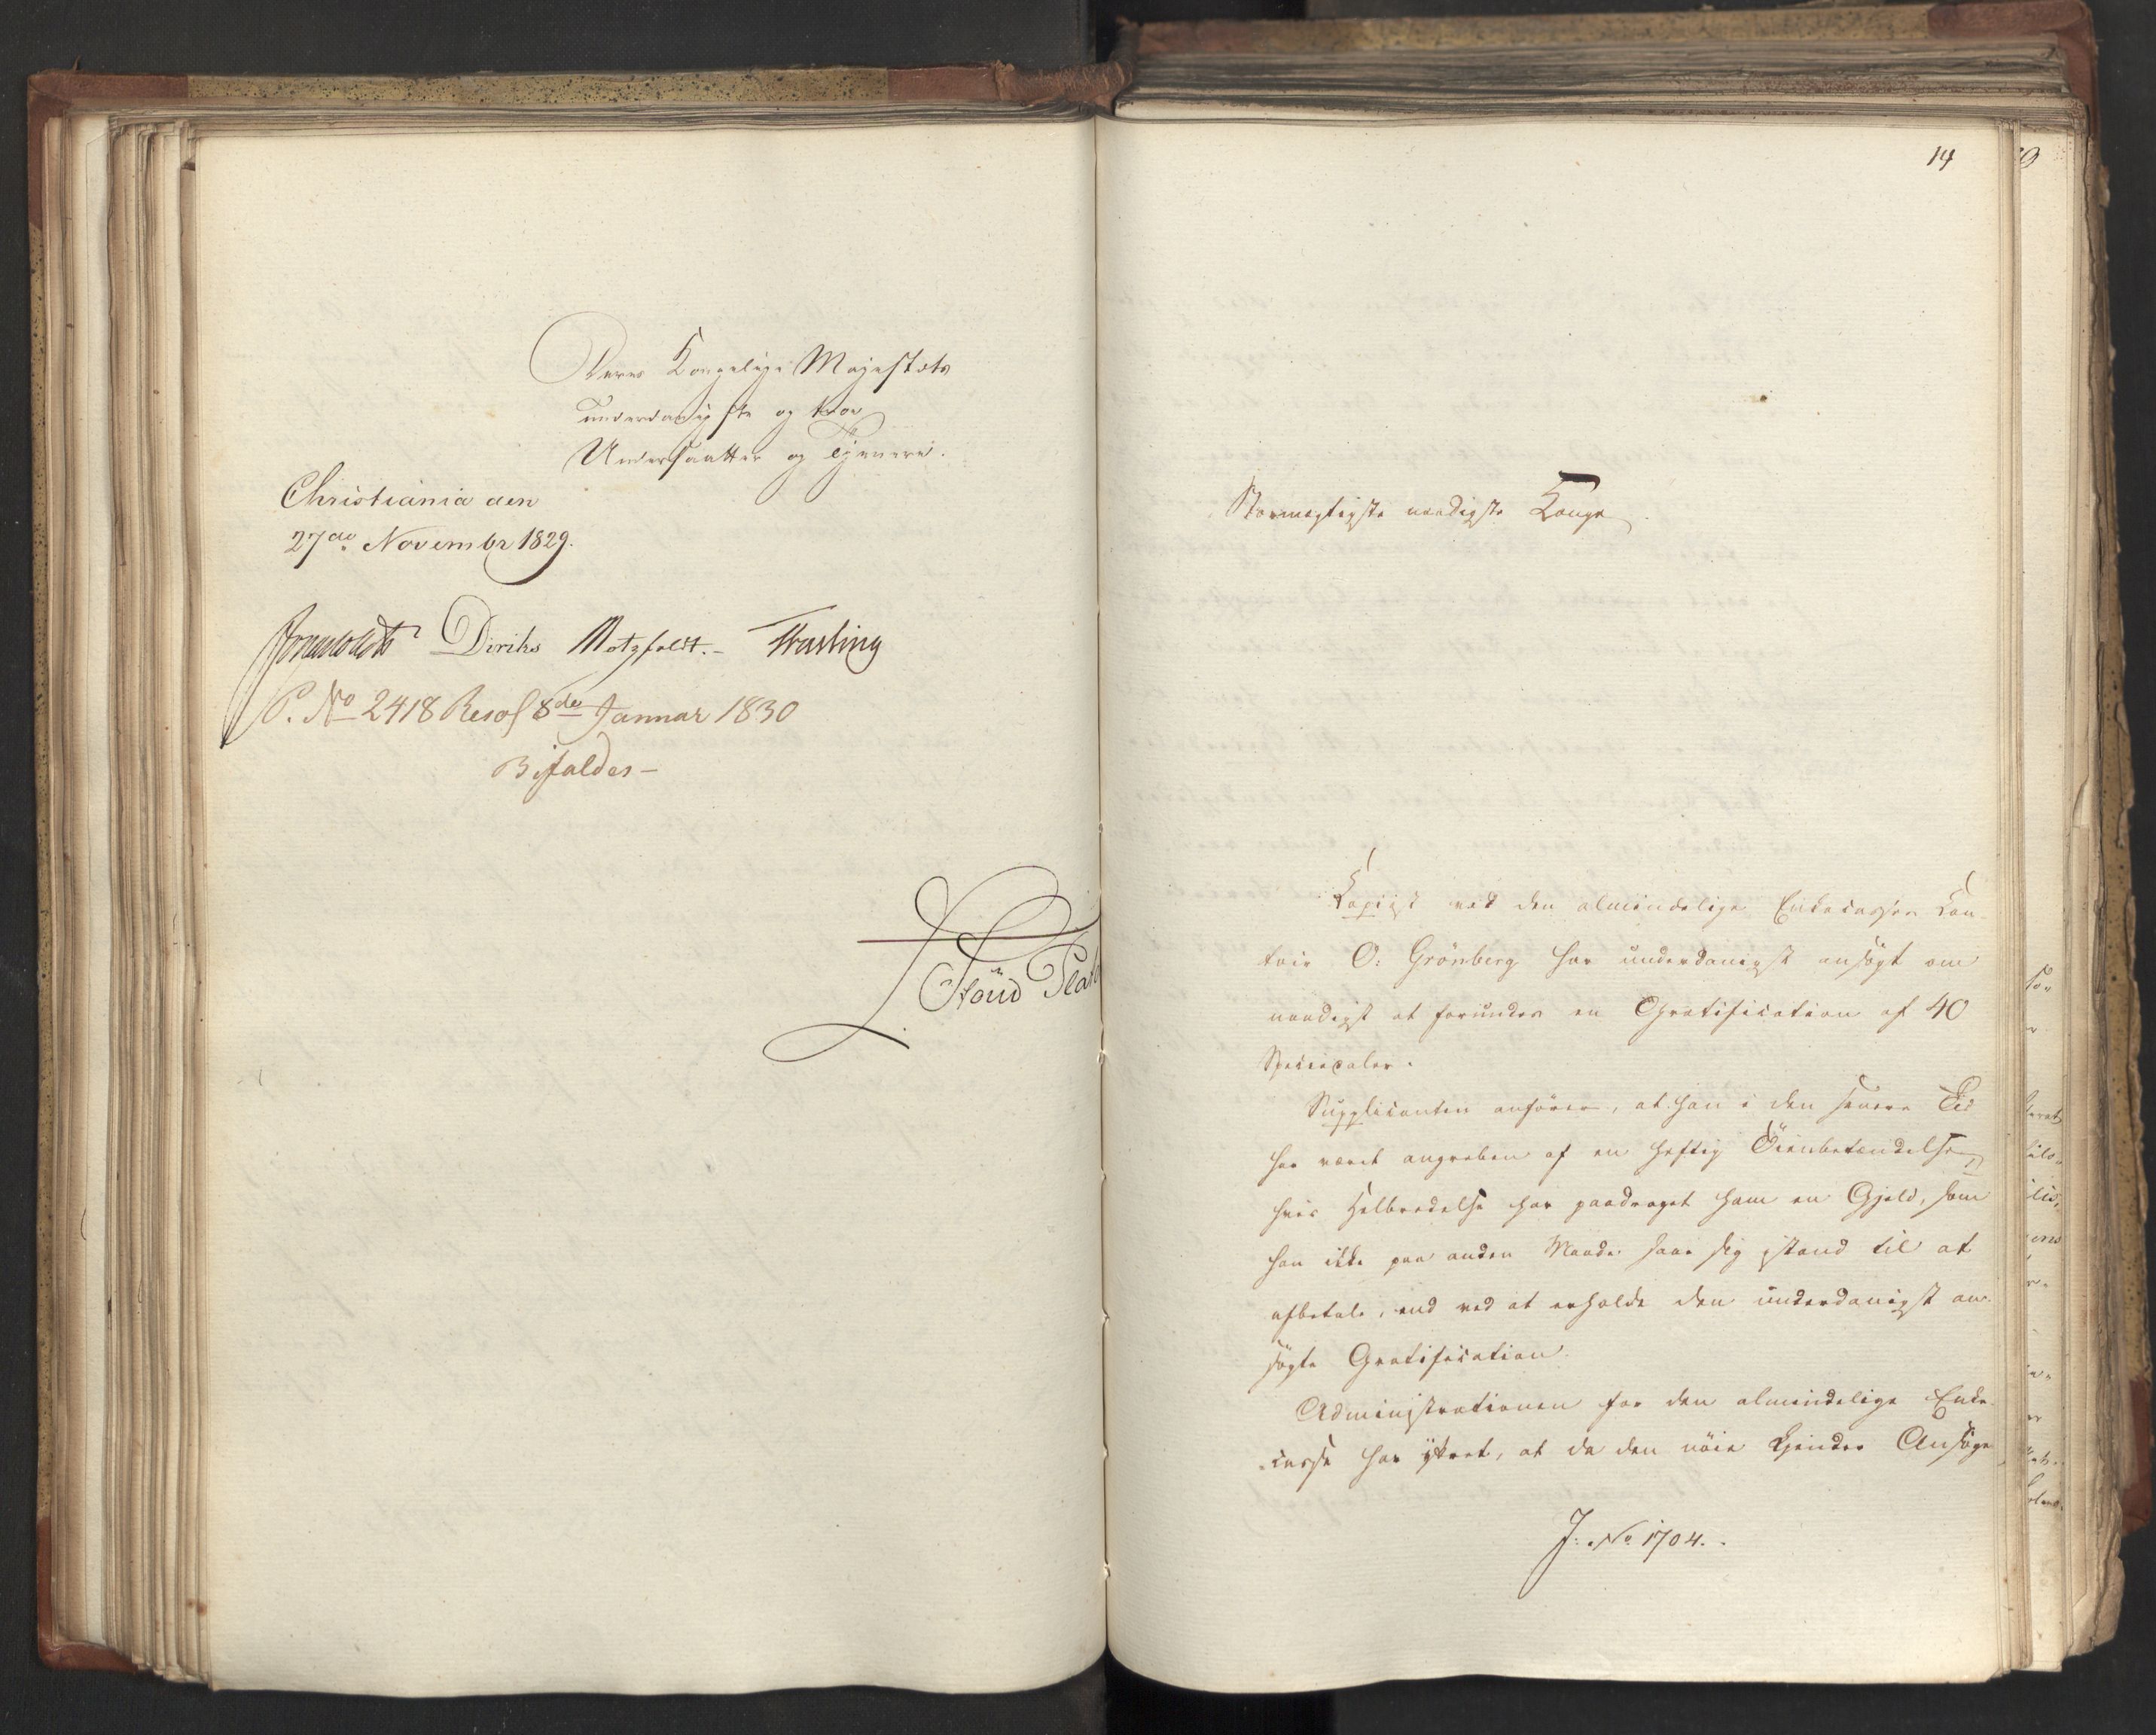 Deres Kongelige Majestets
underdanigste og troe
Undersaatter og Tjenere.
Christiania den
27de Novembr 1829.
Diriks Motzfeldt.-
P. No 2418 Resol 8de Januar 1830
Bifaldes -
14
Stormægtigste naadigste Konge
Kopiist ved den almindelige Enkecasses Con-
toir O: Grönberg har underdanigst ansögt om
naadigst at forundes en Gratification af 40
Speciedaler.
Supplicanten anförer, at han i den senere Tid
har været angreben af en heftig Öienbetændelse,
hvis Helbredelse har paadraget ham en Gjeld, som
han ikke paa anden Maade saae sig istand til at
afbetale, end ved at erholde den underdanigst an-
sögte Gratification.
Administrationen for den almindelige Enke-
casse har yttret, at da den nöie kjender Ansöge
J: No 1704.